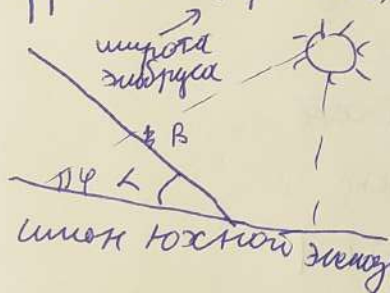 широта
эльбруса
β
πφ α
склон южной экспоз